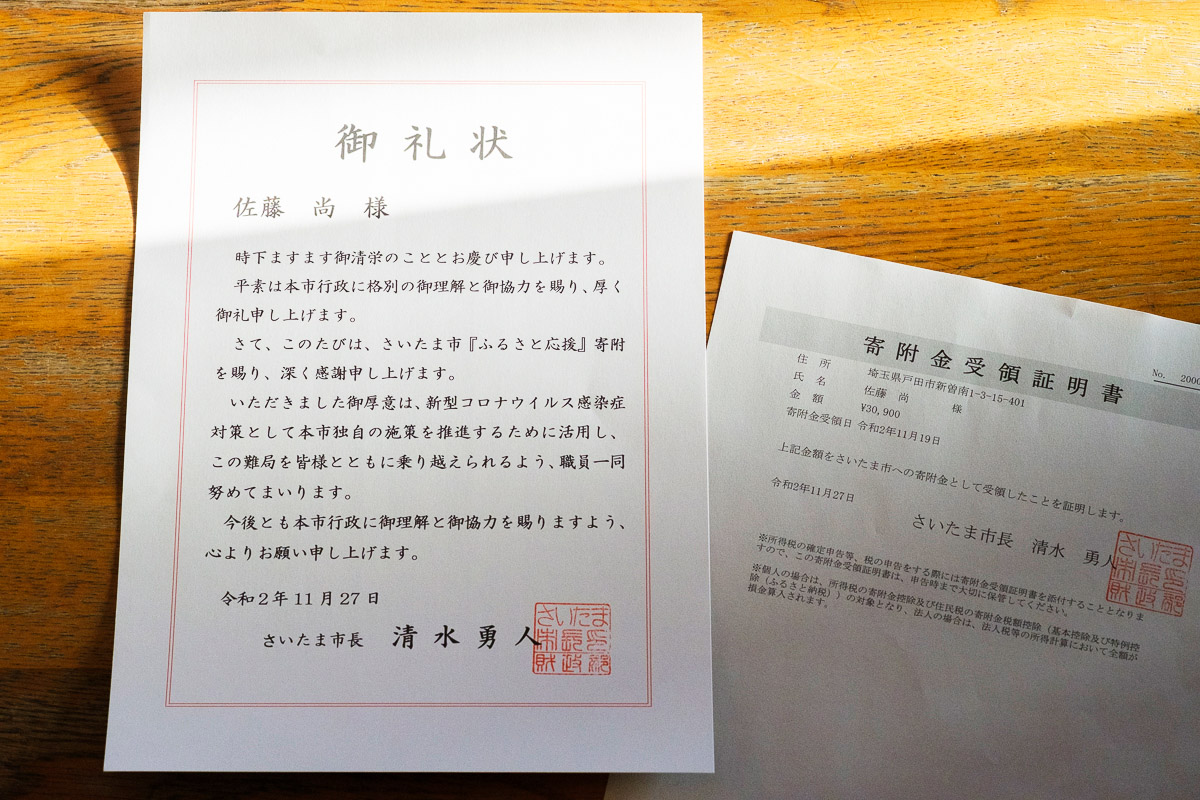 御礼状
佐藤 尚 様
時下ますます御清栄のこととお慶び申し上げます。
平素は本市行政に格別の御理解と御協力を賜り、厚く
御礼申し上げます。
さて、このたびは、さいたま市『ふるさと応援』寄附
を賜り、深く感謝申し上げます。
いただきました御厚意は、新型コロナウイルス感染症
対策として本市独自の施策を推進するために活用し、
この難局を皆様とともに乗り越えられるよう、職員一同
努めてまいります。
今後とも本市行政に御理解と御協力を賜りますよう、
心よりお願い申し上げます。
令和2年11月27日
さいたま市長 清水勇人
寄附金受領証明書
No. 2000
住所 埼玉県戸田市新曽南1-3-15-401
氏名 佐藤 尚 様
金額 ¥30,900
寄附金受領日 令和2年11月19日
上記金額をさいたま市への寄附金として受領したことを証明します。
令和2年11月27日
さいたま市長 清水 勇人
※所得税の確定申告等、税の申告をする際には寄附金受領証明書を添付することとなりま
すので、この寄附金受領証明書は、申告時まで大切に保管してください。
※個人の場合は、所得税の寄附金控除及び住民税の寄附金税額控除（基本控除及び特例控
除（ふるさと納税））の対象となり、法人の場合は、法人税等の所得計算において全額が
損金算入されます。